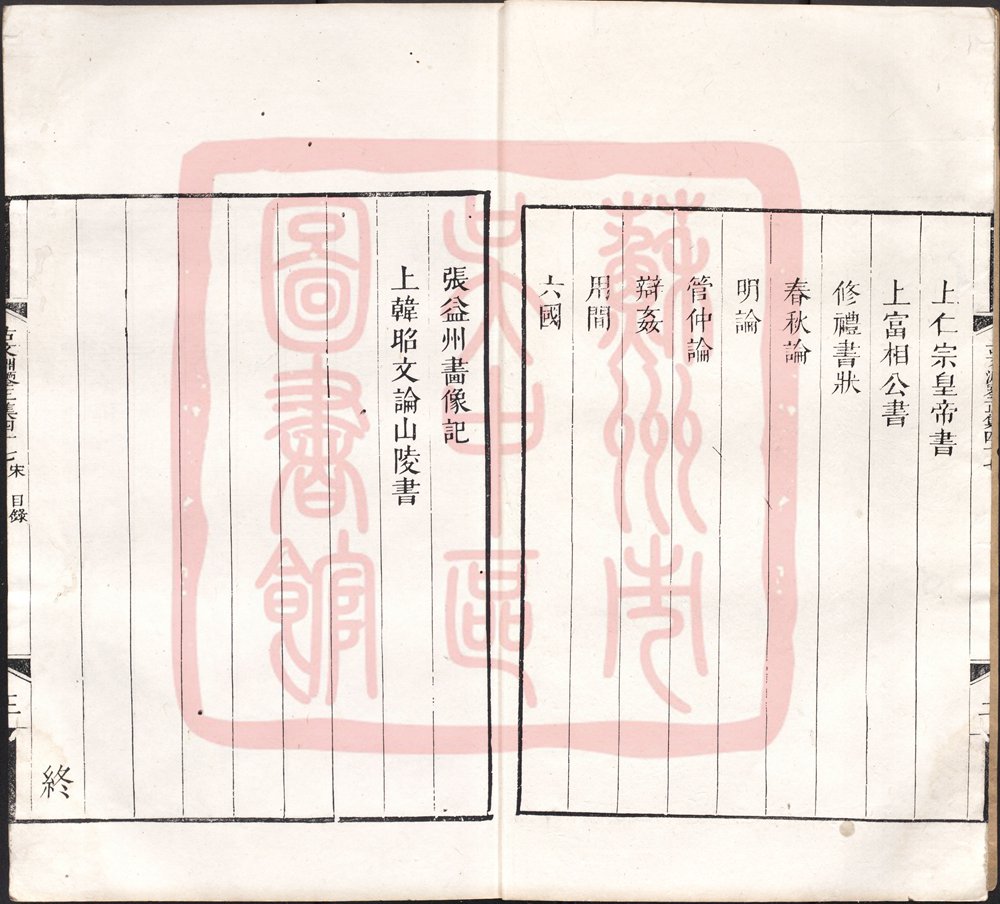 上仁宗皇帝書
上富相公書
修禮書狀
春秋論
明論
管仲論
辯姦
用間
六國
張益州畵像記
上韓昭文論山陵書
宋
目錄
三
終
蘇州市
吴中區
圖書館